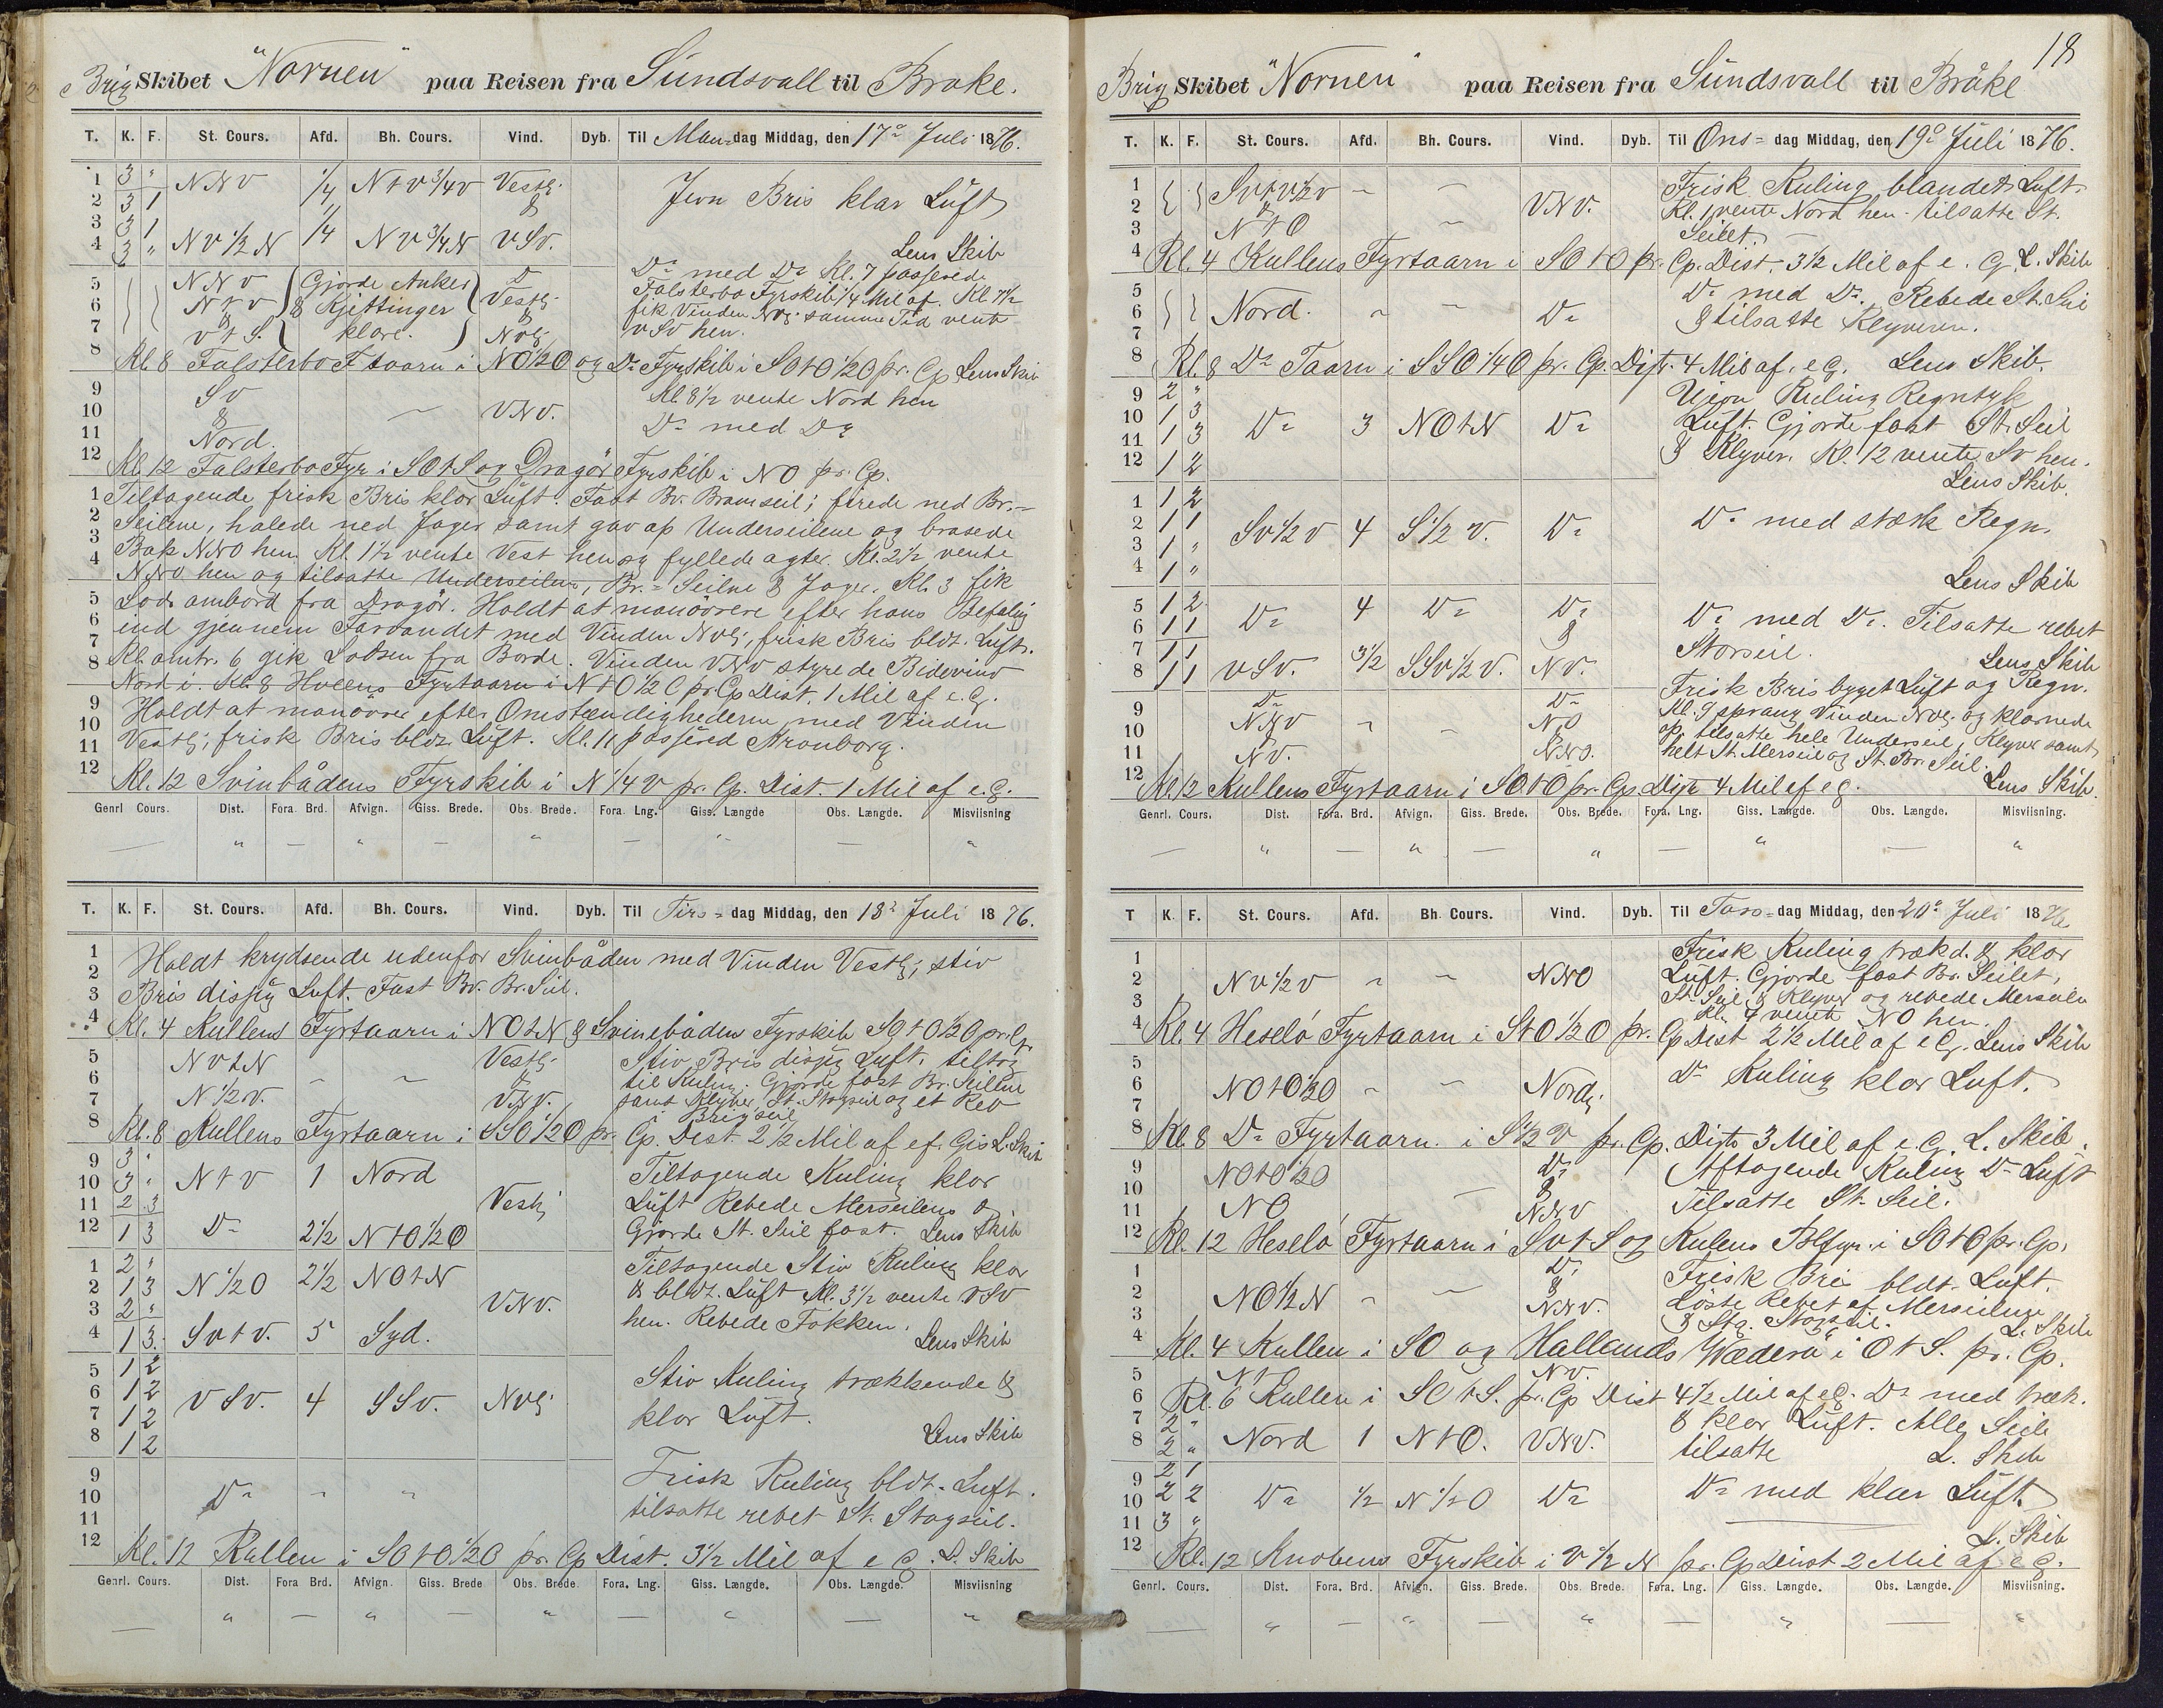 Brig Skibet "Nornen" paa Reisen fra Sundsvall til Brake.
T. K. F. St. Cours. Afd. Bh. Cours. Vind. Dyb. Til Man=dag Middag, den 17de Juli 1876.
1 3 " NNV 1/4 N t V 3/4 V Vestl.
2 3 1 & Jevn Bris klar Luft
3 3 1
4 3 " NV 1/2 N 1/4 NV 3/4 N VSV. Lens Skib
5 NNV Gjorde Anker Do Do med Do Kl. 7 passerede
6 N t V & Kjettinger Vestl. Falsterbo Fyrskib 1/4 Mil af. Kl 7 1/2
7 & & fik Vinden NVl. samme Tid vente
V t S. klare. NVl. VSV hen.
8 Kl. 8 Falsterbo F taarn i NO 1/2 O og Do Fyrskib i SO t O 1/2 O pr. Cp Lens Skib
9 SV Kl. 8 1/2 vente Nord hen
10 & VNV.
11 Nord. Do med Do
12 Kl. 12 Falsterbo Fyr i SO t S og Dragör Fyrskib i NO pr. Cp.
1 Tiltagende frisk Bris klar Luft. Fast Bv. Bramseil; firede ned Br.=
2 Seilene, halede ned Jager samt gav op Underseilene og brasede
3 Bak NNO hen. Kl. 1 1/2 vente Vest hen og fyllede agter. Kl. 2 1/2 vente
4 NNO hen og tilsatte Underseilene, Br.= Seilne & Jager. Kl. 3 fik
5 Lods ombord fra Dragör. Holdt at manövrere efter hans Befaling
6 ind gjennem Farvandet med Vinden NVl., frisk Bris bldt. Luft.
7 Kl. omtr. 6 gik Lodsen fra Borde. Vinden VNV styrede Bidevind
8 Nord i. Kl. 8 Hveens Fyrtaarn i N t O 1/2 O pr. Cp Dist. 1 Mil af e. G.
9 Holdt at manövre efter Omstændighederne med Vinden
10 Vestl; frisk Bris bldt. Luft. Kl. 11 passered Kronborg.
11
12 Kl. 12 Svinbådens Fyrskib i N 1/4 V pr. Cp. Dist. 1 Mil af e. G.
Genrl Cours. Dist. Fora. Brd. Afvign. Giss. Brede. Obs. Brede. Fora. Lng. Giss. Længde Obs. Længde. Misviisning
— " — " — " — " — "
T. K. F. St. Cours. Afd. Bh. Cours. Vind. Dyb. Til Tirs=dag Middag, den 18de Juli 1876.
1 Holdt krydsende udenfor Svinbåden med Vinden Vestl; stiv
2
3 Bris disig Luft. Fast Bv. Br. Seil.
4 Kl. 4 Kullens Fyrtaarn i NO t N & Svinebådens Fyrskib SO t O 1/2 O pr. Cp
5 NV t N Vestl. Stiv Bris disig Luft, tiltog
6 & til Kuling. Gjorde fast Br. Seilene
7 N 1/2 V. VNV. samt Klyver, St. Stagseil og et Reb
i Brigseil
8 Kl. 8 Kullens Fyrtaarn i SSO 1/2 O pr. Cp. Dist. 2 1/2 Mil af ef. Gis L. Skib
9 3 "
10 3 " N t V 1 Nord Tiltagende Kuling klar
11 2 3 Vestl Luft Rebede Merseilene &
12 1 3 Do 2 1/2 N t O 1/2 O Gjorde St. Seil fast. Lens Skib
1 2 " Tiltagende Stiv Kuling klar
2 1 3 N 1/2 O 2 1/2 NO t N & bldt. Luft Kl. 3 1/2 vente VSV
3 2 " VNV. hen. Rebede Fokken.
4 1 3. SV t V. 5 Syd. Lens Skib
5 1 2
6 1 2 VSV. 4 SSV. NVl Stiv Kuling trækkende &
7 1 2 klar Luft.
8 1 2 Lens Skib
9 Frisk Kuling bldt. Luft.
10 Do " "
11 tilsatte rebet St. Stagseil.
12 Kl. 12 Kullen i SO t O 1/2 O pr. Cp Dist. 3 1/2 Mil af e G. L. Skib
Genrl. Cours. Dist. Fora Brd. Afvign. Giss. Brede Obs. Brede Fora. Lng. Giss. Længde. Obs. Længde. Misviisning
— " — " — " — " — "
18
Brig Skibet "Nornen" paa Reisen fra Sundsvall til Bråke
T. K. F. St. Cours. Afd. Bh. Cours. Vind. Dyb. Til Ons=dag Middag, den 19de Juli 1876.
1 SV t V 1/2 V Frisk Kuling blandet Luft
2 & VNV. Kl. 1 vente Nord hen. tilsatte St.
3 N t O Seilet.
4 Kl. 4 Kullens Fyrtaarn i SO t O pr. Cp. Dist. 3 1/2 Mil af e. G. L. Skib
5 Do med Do. Rebede St. Seil
6 Nord. Do
7 & tilsatte Klyveren.
8 Kl. 8 Do Taarn i SSO 1/4 O pr. Cp. Dist. 4 Mil af. e G. Lens Skib.
9 2 " Ujevn Kuling Regntyk
10 1 3 Do 3 NO t N Do Luft. Gjorde fast St. Seil
11 1 3
12 1 2 & Klyver. Kl. 12 vente SV hen.
Lens Skib.
1 1 2
2 1 1 SV 1/2 V 4 S 1/2 V. Do Do med stærk Regn.
3 1 "
4 1 " Lens Skib
5 1 2 Do 4 Do Do Do med Do. Tilsatte rebet
6 1 1 &
7 1 1 VSV. 3 1/2 SSV 1/2 V. NV. Storseil.
8 1 1 Lens Skib
9 Do Do Frisk Bris byget Luft og Regn.
10 NNV NO Kl. 9 sprang Vinden NVl. og klarnede
11 NV. NNO. op. tilsatte hele Underseil, Klyver samt
helt St. Merseil og St. Br. Seil.
12 Kl. 12 Kullens Fyrtaarn i SO t O pr. Cp. Dist 4 Mil af e G. Lens Skib.
Genrl. Cours. Dist. Fora. Brd. Afvign. Giss. Brede. Obs. Brede. Fora. Lng. Giss. Længde. Obs. Længde. Misviisning.
— " — " — " — " — "
T K. F. St. Cours. Afd. Bh. Cours. Vind. Dyb. Til Tors=dag Middag, den 20de Juli 1876.
1 Frisk Kuling trækd. & klar
2 NV 1/2 V " " NNO Luft. Gjorde fast Br. Seilet,
3 St. Seil & Klyver og rebede Merseilen
Kl. 4 vente NO hen.
4 Kl. 4 Heselö Fyrtaarn i S t O 1/2 O pr. Cp Dist 2 1/2 Mil af e G. Lens Skib
5 Do Kuling klar Luft.
6 NO t O 1/2 O Nordl.
7
8 Kl. 8 Do Fyrtaarn i S 1/2 V pr. Cp. Dist 3 Mil af e. G. L. Skib.
9 NO t O 1/2 O Do Aftagende Kuling Do Luft
10 & Tilsatte St. Seil.
11 NO NNV
12 Kl. 12 Heselö Fyrtaarn i SV t S og Kulens Blfyr i SO t O pr. Cp.
1 Do Frisk Bri bldt. Luft.
2 NO 1/2 N & Löste Rebet af Merseilene
3 NNV. & Stg. Stagseil. L. Skib
4 Kl. 4 Kullen i SO og Hallands Wæderö i O t S. pr. Cp.
5 NV.
6 Kl. 6 Kullen i SO t S. pr. Cp Dist 4 1/2 Mil af e G. Do med træk.
7 2 " & klar Luft. Alle Seil
8 2 " Nord 1 N t O. VNV. tilsatte L. Skib
9 2 1
10 2 2 Do 1/2 N 1/2 O Do Do med klar Luft.
11 3 "
L. Skib
12 Kl. 12 Knobens Fyrskib i V 1/2 N pr. Cp Dist 2 Mil af e G.
Genrl. Cours. Dist. Fora. Brd. Afvign. Giss. Brede. Obs. Brede. Fora. Lng. Giss. Længde. Obs. Længde. Misviisning.
— " — " — " — " — "